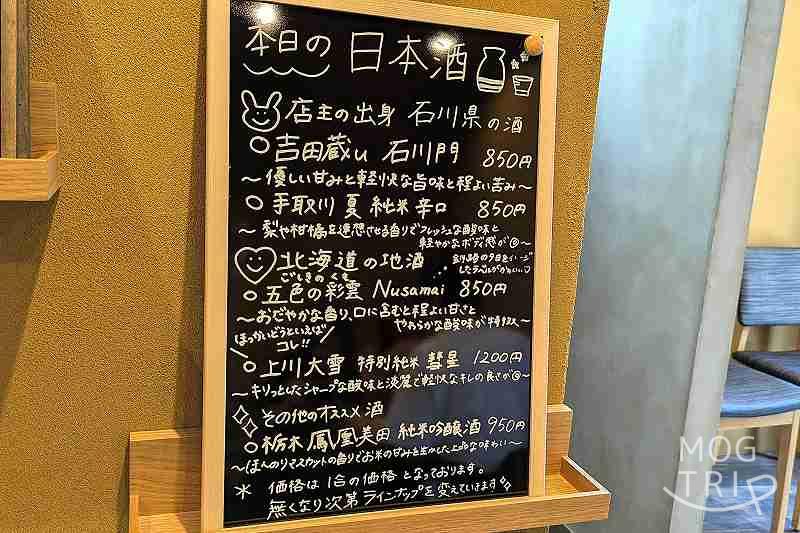 本日の 日本酒
店主の出身 石川県の酒
吉田蔵u 石川門 850円
～優しい甘みと軽快な旨味と程よい苦み～
手取川 夏 純米 辛口 850円
～梨や柑橘を連想させる香りでフレッシュな酸味と
軽やかなボディ感が◎～
北海道の地酒
釧路の夕日をイメージ
したラベルがかわいい
ごしきのくも
五色の彩雲 Nusamai 850円
～おだやかな香り、口に含むと程よい甘さと
やわらかな酸味が特徴～
ほっかいどうといえば
コレ!!
上川大雪 特別純米 彗星 1200円
～キリっとしたシャープな酸味と淡麗で軽快なキレの良さが◎～
その他のオススメ酒
栃木 鳳凰美田 純米吟醸酒 950円
～ほんのりマスカットの香りでお米の甘みを生かした上品な味わい～
＊ 価格は1合の価格となっております。
無くなり次第ラインナップを変えていきます
MOG
TRIP